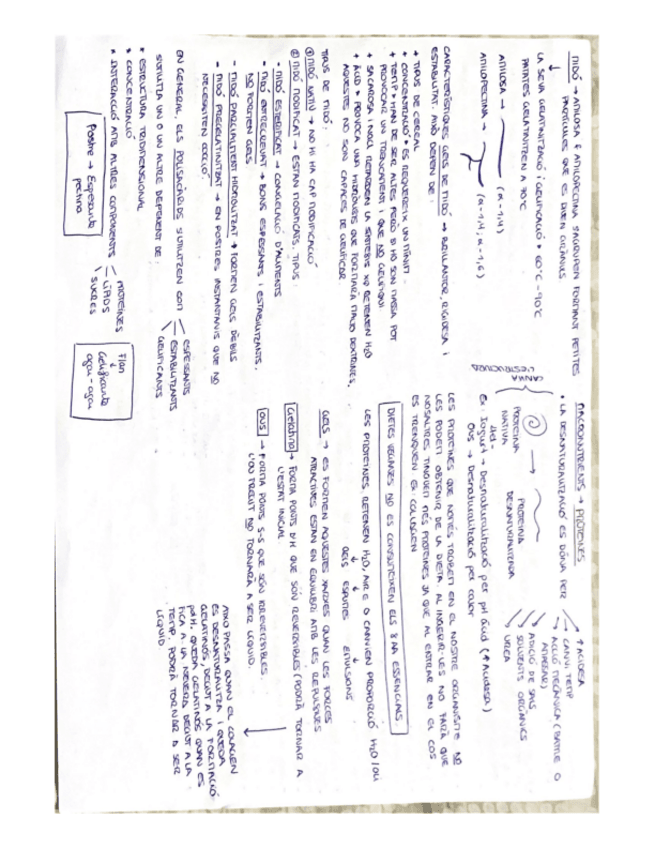 MIDÓ → AMILOSA & AMILOPECTINA S'AGRUPEN FORMANT PETITES
PARTÍCULES QUE ES DIUEN GRÀNULS
LA SEVA GELATINITZACIÓ i GELIFICACIÓ → 60ºC - 90ºC
PATATES GELATINITZEN A 70ºC
AMILOSA → (α-1,4)
AMILOPECTINA → (α-1,4; α-1,6)
CARACTERÍSTIQUES GELS DE MIDÓ → BRILLANTOR, RIGIDESA i
ESTABILITAT. AIXÒ DEPEN DE:
+ TIPUS DE CEREAL
+ CONCENTRACIÓ → ES REQUEREIX UN MÍNIM
+ TEMPª → HAN DE SER ALTES PERÒ SI HO SÓN MASSA POT
PROVOCAR UN TRENCAMENT i QUE NO GELIFIQUI
+ SACAROSA i NaCl RETARDEN LA SÍNTESIS XQ RETENEN H2O
+ ÀCID → PROVOCA UNA HIDRÒLISIS QUE FORMARÀ DEXTRINES,
AQUESTES NO SÓN CAPACES DE GELIFICAR
TIPUS DE MIDÓ:
① MIDÓ NATIU → NO HI HA CAP MODIFICACIÓ
② MIDÓ MODIFICAT → ESTAN MODIFICATS. TIPUS:
- MIDÓ ESTERIFICAT → CONGELACIÓ D'ALIMENTS
- MIDÓ → BONS ESPESSANTS i ESTABILITZANTS,
NO FORMEN GELS
- MIDÓ PARCIALMENT HIDROLITZAT → FORMEN GELS DÈBILS
- MIDÓ PREGELATINITZAT → EN POSTRES INSTANTANIS QUE NO
NECESSITEN COCCIÓ
EN GENERAL, ELS POLISACÀRIDS S'UTILITZEN COM
ESPESSANTS
ESTABILITZANTS
GELIFICANTS
S'UTILITZA UN O UN ALTRE DEPENENT DE:
• ESTRUCTURA TRIDIMENSIONAL
• CONCENTRACIÓ
• INTERACCIÓ AMB ALTRES COMPONENTS
PROTEÏNES
LÍPIDS
SUCRES
Postre → Espessants
pectina
Flan
Gelificants
agar-agar
MACRONUTRIENTS → PROTEÏNES
• LA DESNATURALITZACIÓ ES DÓNA PER
↑ ACIDESA
CANVI TEMP
ACCIÓ MECÀNICA (BATRE O
AMASSAR)
ADICIÓ DE SALS
SOLVENTS ORGÀNICS
UREA
CANVIA
L'ESTRUCTURA
PROTEÏNA
NATIVA
PROTEÏNA
DESNATURALITZADA
Ex: Iogurt → Desnaturalització per pH àcid (↑ Acidesa)
OUS → Desnaturalització per calor
LES PROTEÏNES QUE NOMÉS TROBEM EN EL NOSTRE ORGANISME NO
LES PODEM OBTENIR DE LA DIETA. AL INGERIR-LES NO FARÀ QUE
NOSALTRES TINGUEM MÉS PROTEÏNES JA QUE AL ENTRAR EN EL COS
ES TRENQUEN EX: COLÀGEN
DIETES VEGANES NO ES CONSUMEIXEN ELS 8 AA ESSENCIALS.
LES PROTEÏNES RETENEN H2O, AIRE O CANVIEN PROPORCIÓ H2O/OLI
GELS ESPUMES EMULSIONS
GELS → ES FORMEN AQUESTES XARXES QUAN LES FORCES
ATRACTIVES ESTAN EN EQUILIBRI AMB LES REPULSIVES
Gelatina → FORMA PONTS D'H QUE SÓN REVERSIBLES (PODRÀ TORNAR A
L'ESTAT INICIAL
OUS → FORMA PONTS S-S QUE SÓN IRREVERSIBLES
L'OU NO TORNARÀ A SER LÍQUID.
AIXÒ PASSA QUAN EL COLAGEN
ES DESNATURALITZA i QUEDA
GELATINÓS, DEGUT A LA FORMACIÓ
QUEDA GELATINÓS QUAN ES
FICA A LA NEVERA DEGUT A LA
TEMP. PODRÀ TORNAR A SER
LÍQUID.